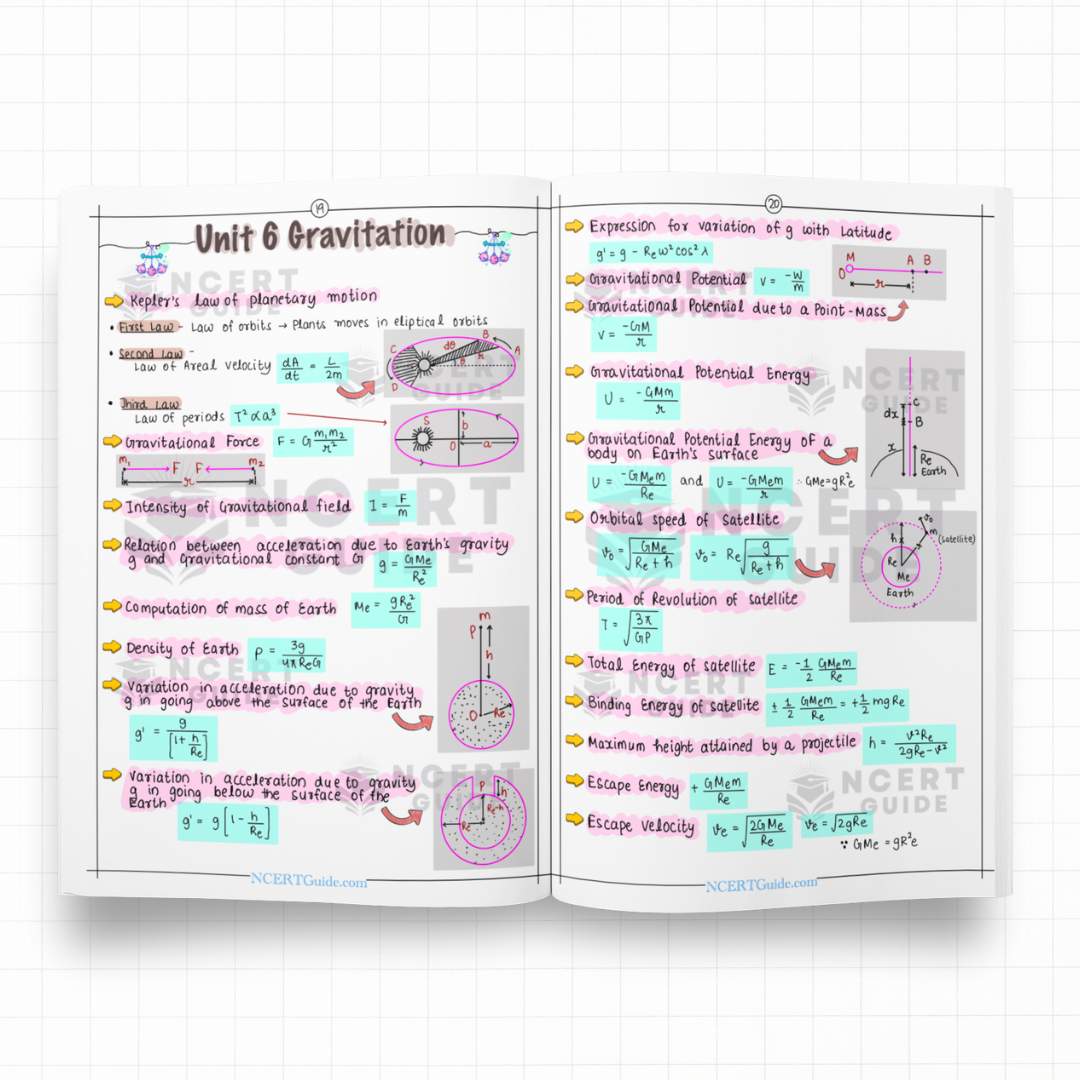 19
Unit 6 Gravitation
Kepler's law of planetary motion
• First Law - Law of orbits → Plants moves in eliptical orbits
• Second Law -
Law of Areal velocity dA/dt = L/2m
C dθ B A D
• Third Law
Law of periods T² ∝ a³
S b O a
Gravitational Force F = G m₁m₂/r²
m₁ F F m₂
r
Intensity of Gravitational field I = F/m
Relation between acceleration due to Earth's gravity
g and Gravitational constant G g = GMe/Re²
Computation of mass of Earth Me = gRe²/G
Density of Earth ρ = 3g/4πReG
m
P
h
O Re
Variation in acceleration due to gravity
g in going above the surface of the Earth
g' = g/[1+ h/Re]
Variation in acceleration due to gravity
g in going below the surface of the
Earth
g' = g[1 - h/Re]
P h
Re Re-h
NCERTGuide.com
20
Expression for variation of g with Latitude
g' = g - Reω²cos²λ
Gravitational Potential V = -W/m
M A B
O r
Gravitational Potential due to a Point-Mass
V = -GM/r
Gravitational Potential Energy
U = -GMm/r
Gravitational Potential Energy of a
body on Earth's surface
U = -GMem/Re and U = -GMem/r ∴ GMe=gR²e
C
dx
B
x
Re
Earth
Orbital speed of Satellite
v₀ = √GMe/Re+h v₀ = Re√g/Re+h
v₀
h m
(Satellite)
Re r
Me
Earth
Period of Revolution of satellite
T = √3π/GP
Total Energy of satellite E = -1/2 GMem/Re
Binding Energy of satellite ± 1/2 GMem/Re = +1/2 mgRe
Maximum height attained by a projectile h = v²Re/2gRe-v²
Escape Energy + GMem/Re
Escape Velocity ve = √2GMe/Re ve = √2gRe
∵ GMe = gR²e
NCERTGuide.com
NCERT
GUIDE